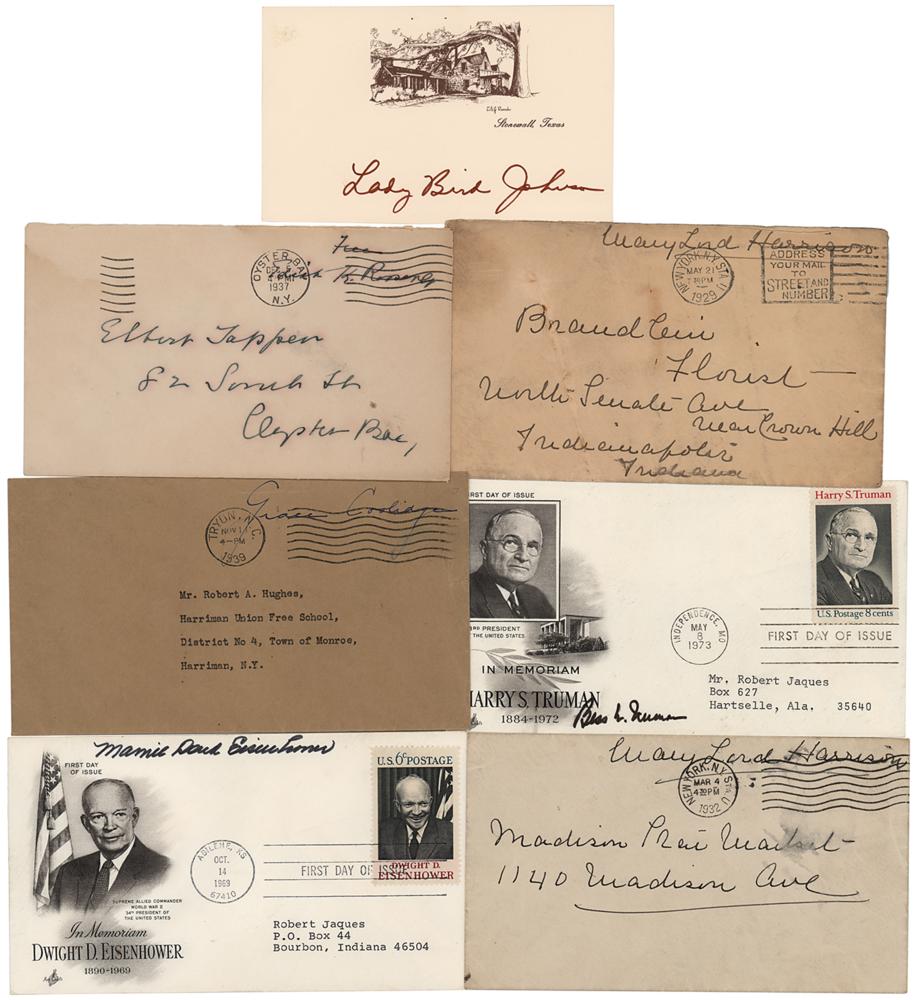 Stonewall, Texas
Lady Bird Johnson
OYSTER BAY
DEC
4 PM
1937
N.Y.
Free
Edith K. Roosevelt
Elbert Tappen
82 South St
Oyster Bay,
Mary Lord Harrison
NEW YORK, N.Y. STA. U
MAY 21
PM
1929
ADDRESS
YOUR MAIL
TO
STREET AND
NUMBER
Florist
North Senate Ave
near Crown Hill
Indianapolis
Indiana
Grace Coolidge
TRYON, N.C.
NOV
4-PM
1939
Mr. Robert A. Hughes,
Harriman Union Free School,
District No 4, Town of Monroe,
Harriman, N.Y.
RST DAY OF ISSUE
RD PRESIDENT
THE UNITED STATES
IN MEMORIAM
HARRY S. TRUMAN
1884-1972
Bess W. Truman
Harry S. Truman
U.S. Postage 8 cents
INDEPENDENCE, MO
MAY
8
1973
FIRST DAY OF ISSUE
Mr. Robert Jaques
Box 627
Hartselle, Ala. 35640
Mamie Doud Eisenhower
FIRST DAY
OF ISSUE
SUPREME ALLIED COMMANDER
WORLD WAR II
34th PRESIDENT OF
THE UNITED STATES
In Memoriam
DWIGHT D. EISENHOWER
1890-1969
U.S. 6c POSTAGE
DWIGHT D.
EISENHOWER
ABILENE, KS
OCT.
14
1969
67410
FIRST DAY OF ISSUE
Robert Jaques
P.O. Box 44
Bourbon, Indiana 46504
Mary Lord Harrison
NEW YORK, N.Y. STA. U
MAR 4
PM
1932
Madison
1140 Madison Ave